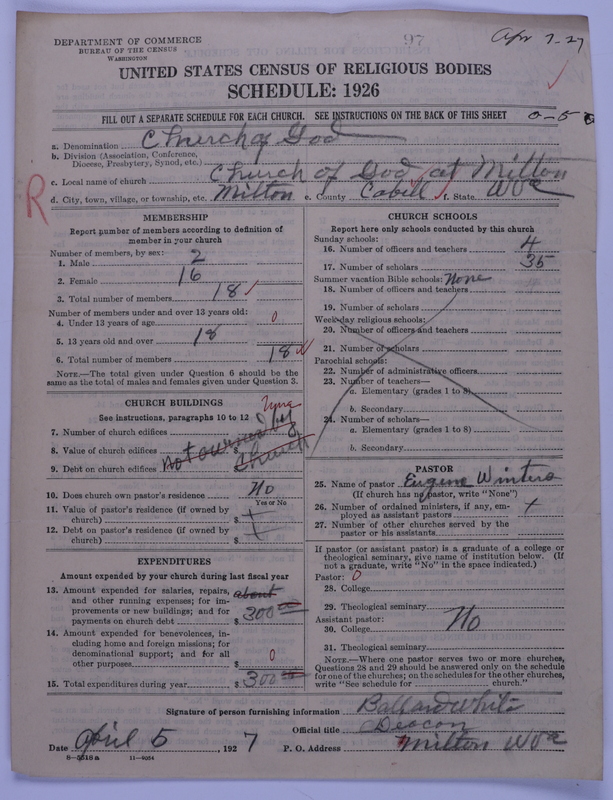 97
Apr 7-27
DEPARTMENT OF COMMERCE
BUREAU OF THE CENSUS
WASHINGTON
UNITED STATES CENSUS OF RELIGIOUS BODIES
SCHEDULE: 1926
FILL OUT A SEPARATE SCHEDULE FOR EACH CHURCH. SEE INSTRUCTIONS ON THE BACK OF THIS SHEET
0-5
a. Denomination Church of God
b. Division (Association, Conference, Diocese, Presbytery, Synod, etc.)
c. Local name of church Church of God at Milton
d. City, town, village, or township, etc. Milton e. County Cabell f. State W Va
R
MEMBERSHIP
Report number of members according to definition of
member in your church
Number of members, by sex:
1. Male 2
2. Female 16
3. Total number of members 18
Number of members under and over 13 years old:
4. Under 13 years of age 0
5. 13 years old and over 18
6. Total number of members 18
NOTE.—The total given under Question 6 should be the
same as the total of males and females given under Question 3.
CHURCH BUILDINGS
See instructions, paragraphs 10 to 12
7. Number of church edifices
8. Value of church edifices $
9. Debt on church edifices $
not owned by
church
10. Does church own pastor's residence No
Yes or No
11. Value of pastor's residence (if owned by
church) $
12. Debt on pastor's residence (if owned by
church) $
EXPENDITURES
Amount expended by your church during last fiscal year
13. Amount expended for salaries, repairs,
and other running expenses; for im-
provements or new buildings; and for
payments on church debt $ about 300 00
14. Amount expended for benevolences, in-
cluding home and foreign missions; for
denominational support; and for all
other purposes $ 0
15. Total expenditures during year $ 300 00
CHURCH SCHOOLS
Report here only schools conducted by this church
Sunday schools:
16. Number of officers and teachers 4
17. Number of scholars 35
Summer vacation Bible schools: None
18. Number of officers and teachers
19. Number of scholars
Week-day religious schools:
20. Number of officers and teachers
21. Number of scholars
Parochial schools:
22. Number of administrative officers
23. Number of teachers—
a. Elementary (grades 1 to 8)
b. Secondary
24. Number of scholars—
a. Elementary (grades 1 to 8)
b. Secondary
PASTOR
25. Name of pastor Eugene Winters
(If church has no pastor, write "None")
26. Number of ordained ministers, if any, em-
ployed as assistant pastors
27. Number of other churches served by the
pastor or his assistants
If pastor (or assistant pastor) is a graduate of a college or
theological seminary, give name of institution below. (If
not a graduate, write "No" in the space indicated.)
Pastor: 0
28. College
29. Theological seminary
Assistant pastor: No
30. College
31. Theological seminary
NOTE.—Where one pastor serves two or more churches,
Questions 28 and 29 should be answered only on the schedule
for one of the churches; on the schedules for the other churches,
write "See schedule for church."
Signature of person furnishing information Ballard White
Official title Deacon
Date April 5, 1927 P. O. Address Milton W Va
8—5518a 11—9054